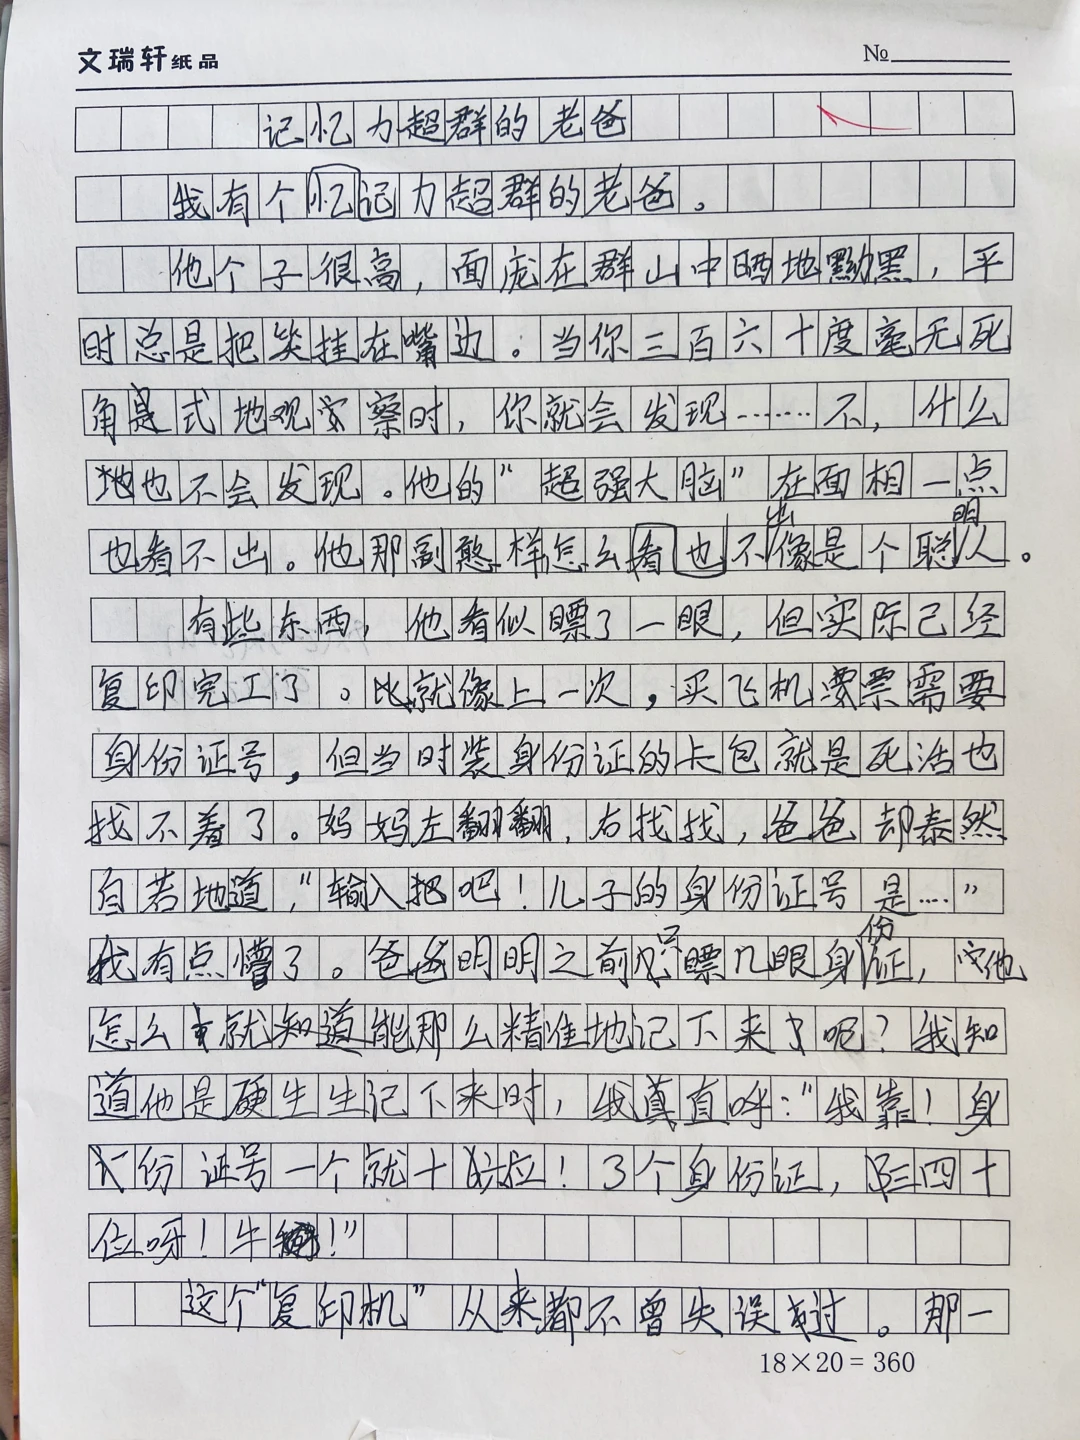 文瑞轩纸品 №
记忆力超群的老爸
我有个忆记力超群的老爸。
他个子很高，面庞在群山中晒地黝黑，平
时总是把笑挂在嘴边。当你三百六十度毫无死
角是式地观察时，你就会发现……不，什么
地也不会发现。他的“超强大脑”在面相一点
也看不出。他那副憨样怎么看也不出像是个聪明人。
有些东西，他看似瞟了一眼，但实际已经
复印完工了。比就像上一次，买飞机票需要
身份证号，但当时装身份证的卡包就是死活也
找不着了。妈妈左翻翻，右找找，爸爸却泰然
自若地道，“输入把吧！儿子的身份证号是……”
我有点懵了。爸爸明明之前只瞟几眼身份证，他
怎么就知道能那么精准地记下来了呢？我知
道他是硬生生记下来时，我真直呼：“我靠！身
份证号一个就十位！3个身份证，三四十
位呀！牛！”
这个“复印机”从来都不曾失误过。那一
18×20＝360